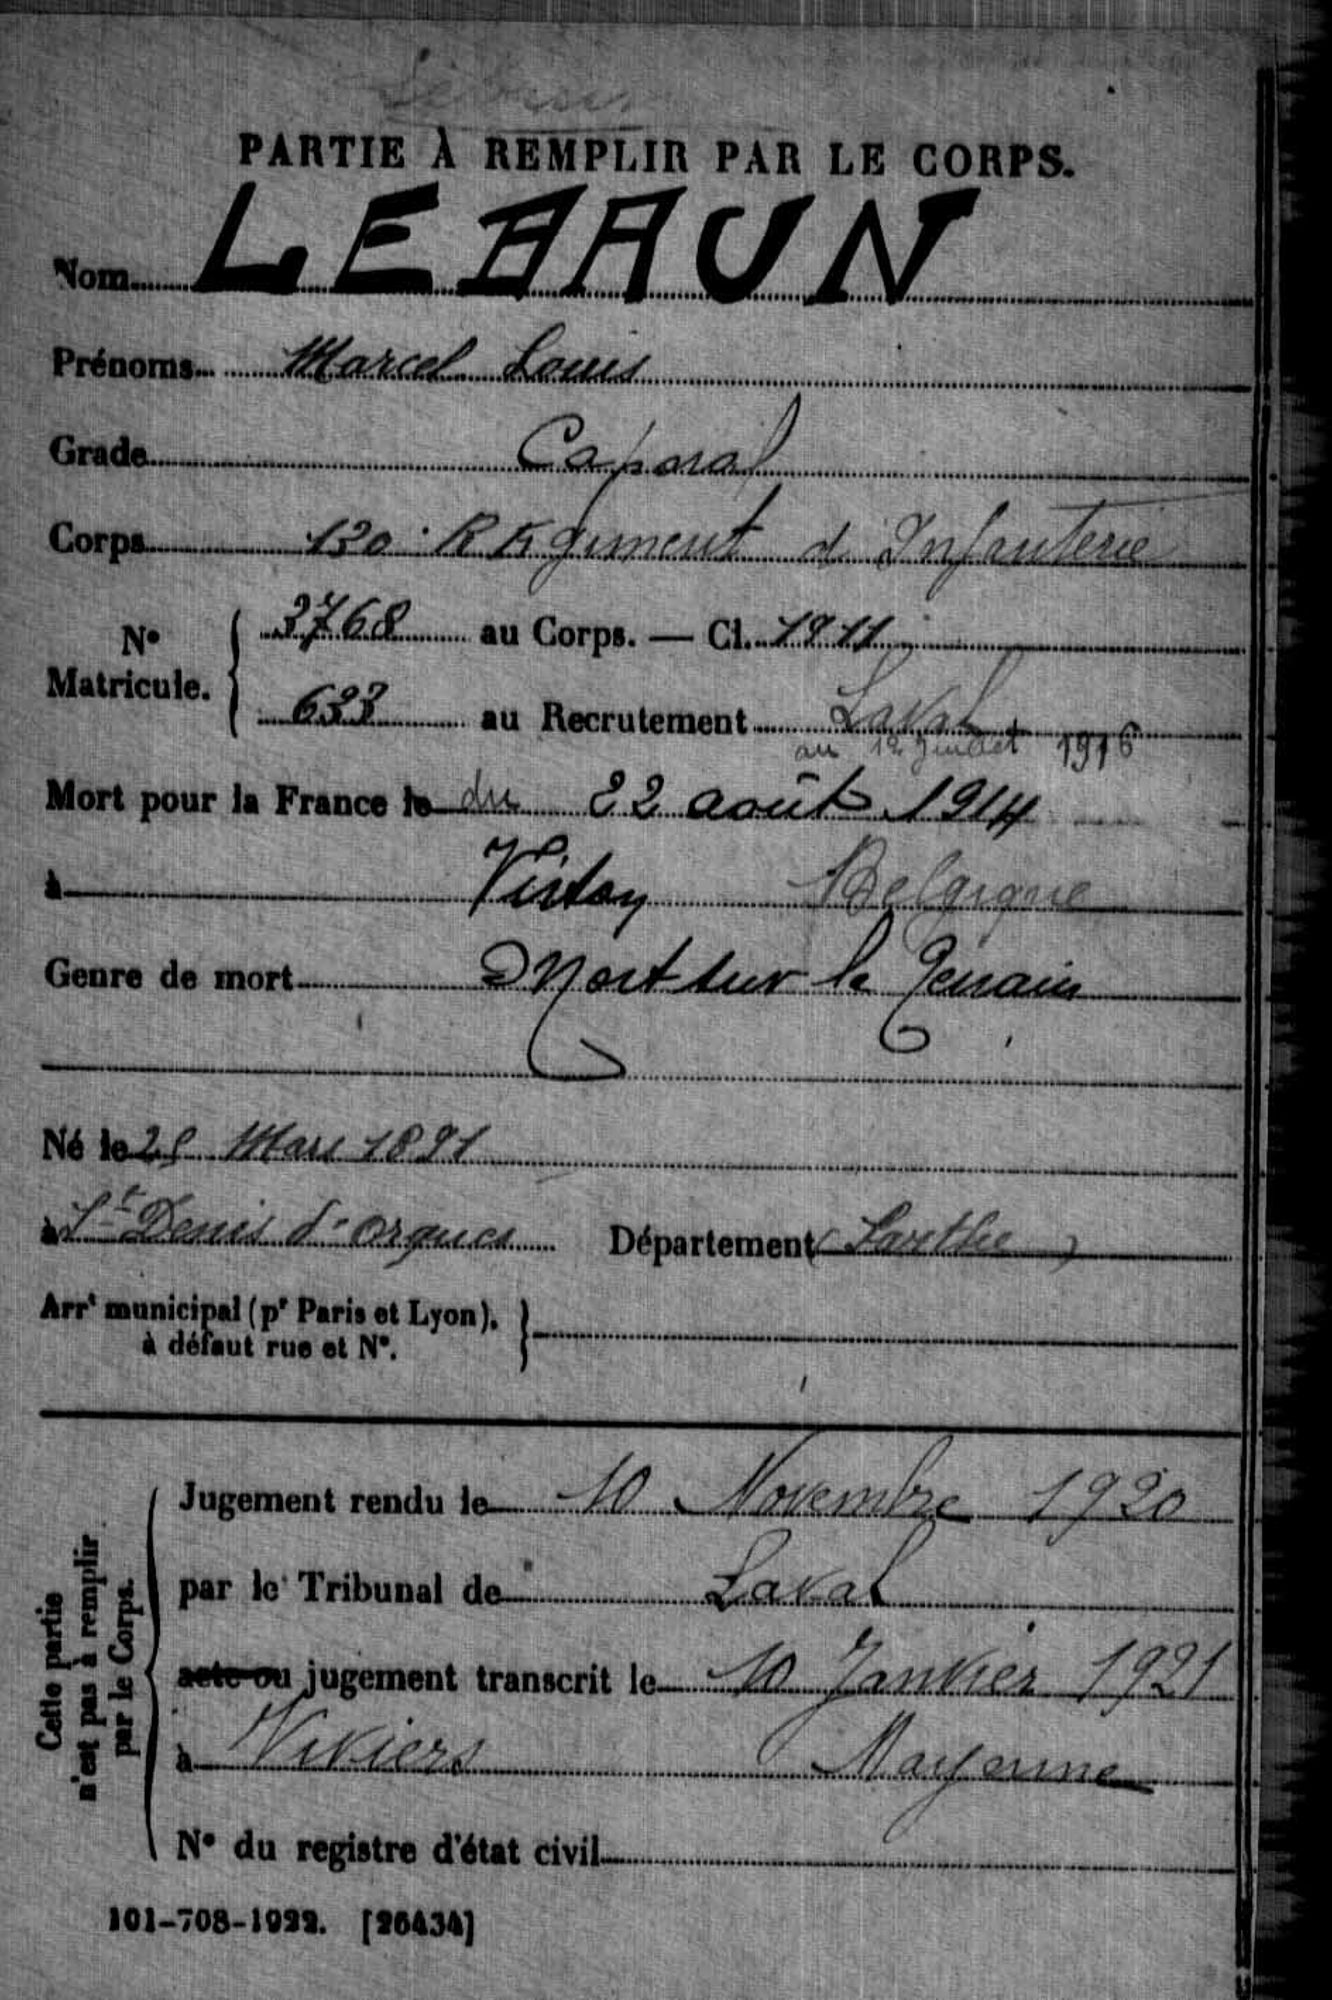 Lebrun
PARTIE À REMPLIR PAR LE CORPS.
Nom LEBRUN
Prénoms Marcel Louis
Grade Caporal
Corps 130 Régiment d'Infanterie
N° Matricule. 3768 au Corps. — Cl. 1911
633 au Recrutement Laval
au 12 Juillet 1916
Mort pour la France le du 22 août 1914
à Virton Belgique
Genre de mort Mort sur le Terrain
Né le 25 Mars 1891
à St Denis d'orques Département (Sarthe)
Arrt municipal (pr Paris et Lyon),
à défaut rue et N°.
Cette partie
n'est pas à remplir
par le Corps.
Jugement rendu le 10 Novembre 1920
par le Tribunal de Laval
acte ou jugement transcrit le 10 Janvier 1921
à Viviers Mayenne
N° du registre d'état civil
101-708-1922. [26434]